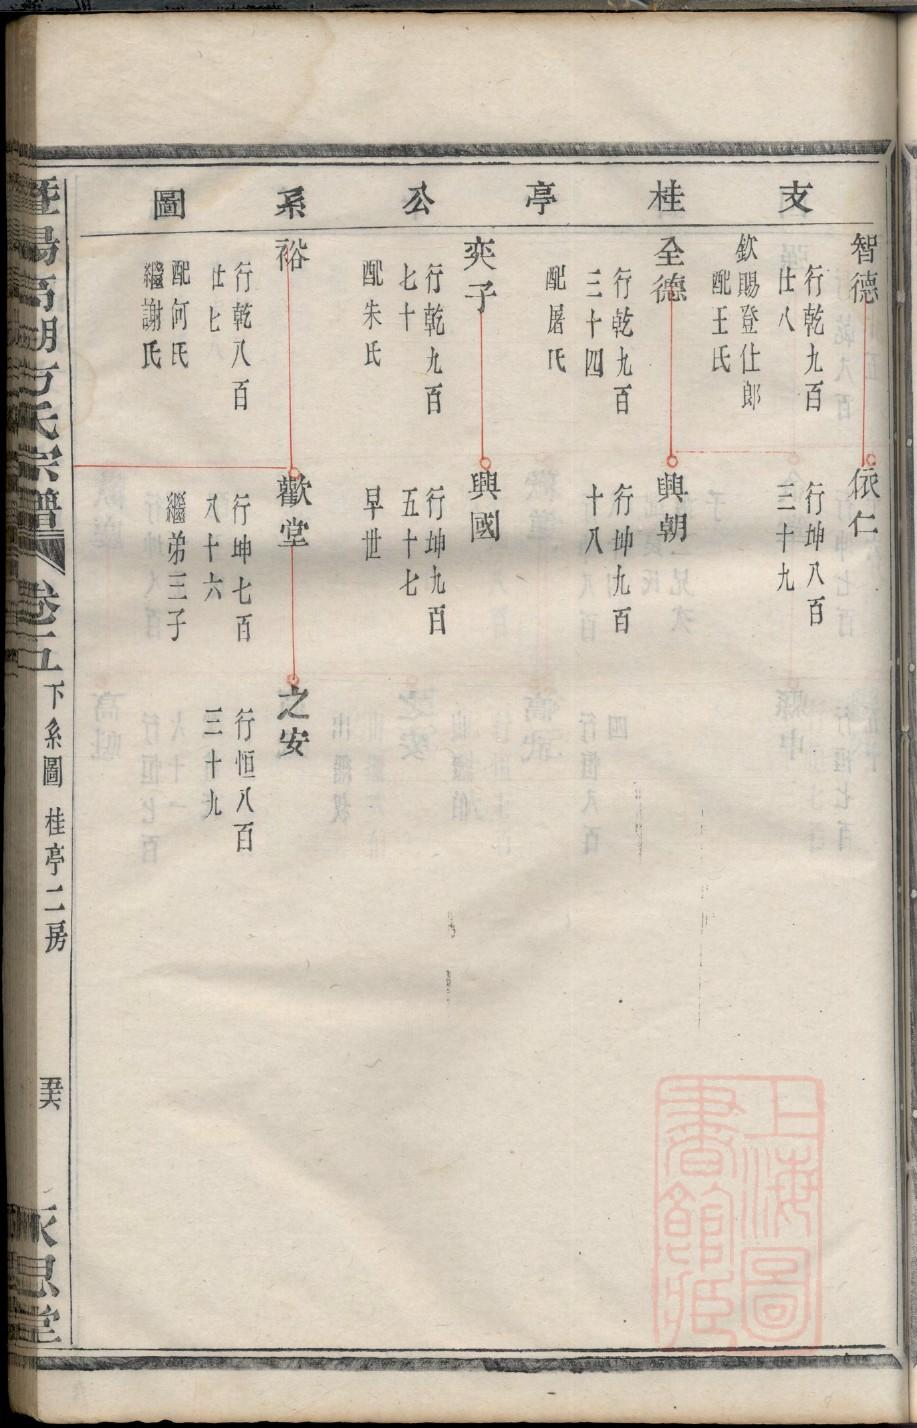 支桂亭公系圖
智德
行乾九百
仕八
欽賜登仕郎
配王氏
全德
行乾九百
三十四
配屠氏
奕子
行乾九百
七十
配朱氏
裕
行乾八百
仕七
配何氏
繼謝氏
依仁
行坤八百
三十九
興朝
行坤九百
十八
興國
行坤九百
五十七
早世
歡堂
行坤七百
八十六
繼弟三子
之安
行恒八百
三十九
暨陽高湖方氏宗譜
卷二五
下系圖 桂亭二房
永思堂
上海圖
書館藏